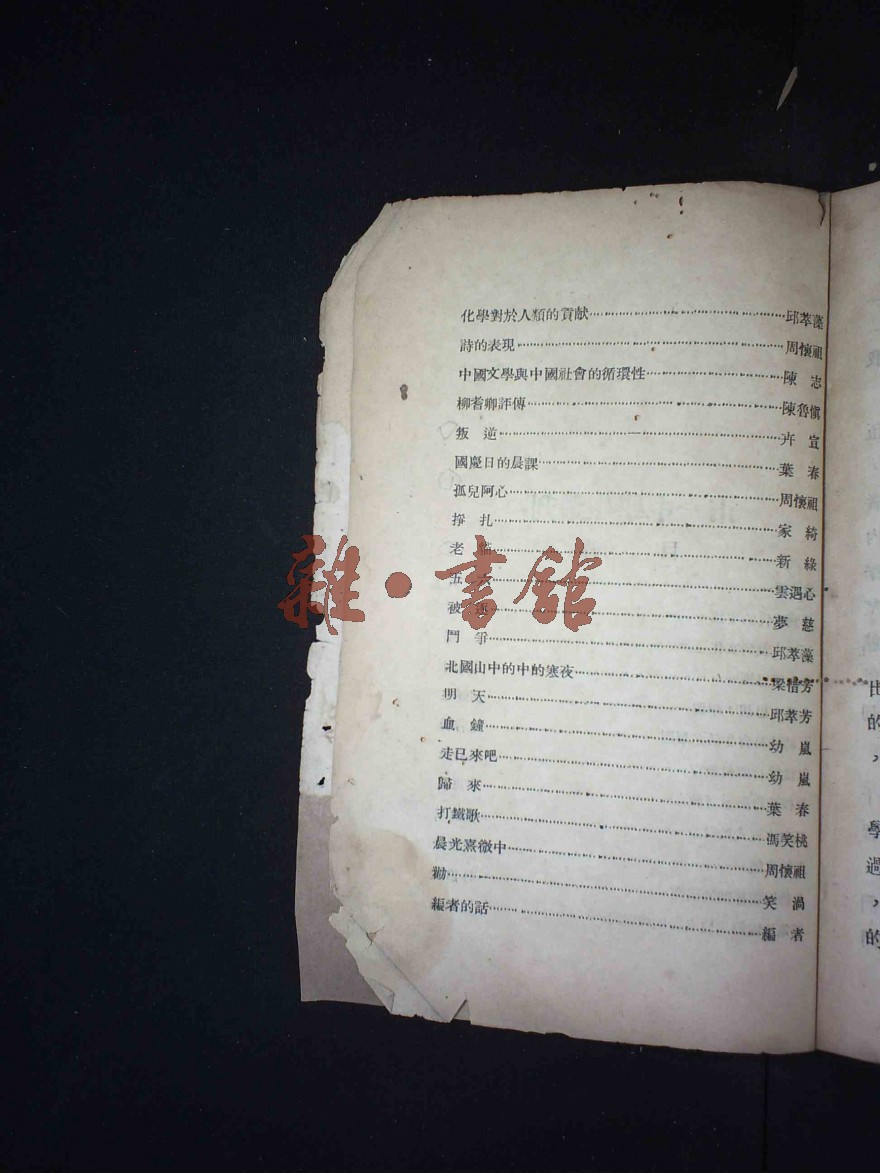 化學對於人類的貢献……邱萃藻
詩的表現……周懷祖
中國文學與中國社會的循環性……陳 志
柳耆卿評傳……陳魯愼
叛 逆……卉 宣
國慶日的晨課……葉 春
孤兒阿心……周懷祖
掙 扎……家 綺
老……新 綠
五……雲遇心
被……夢 慈
鬥 爭……邱萃藻
北國山中的中的寒夜……梁惜芳
明 天……邱萃芳
血 鐘……幼 嵐
走已來吧……幼 嵐
歸 來……葉 春
打鐵歌……馮笑桃
晨光熹微中……周懷祖
勸……笑 渦
編者的話……編 者
雜·書館
比
的
，
學
過
，
的